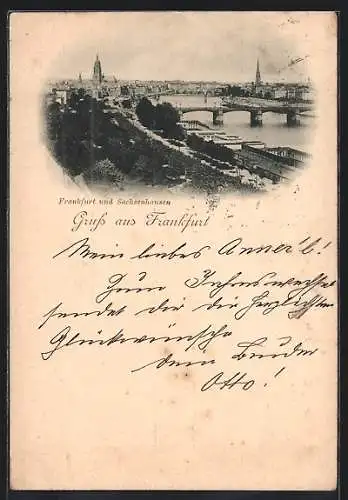 Frankfurt und Sachsenhausen
Gruß aus Frankfurt
Mein liebes Annerl!
Zum Jahreswechsel
sendet dir die herzlichsten
Glückwünsche
dein Bruder
Otto!